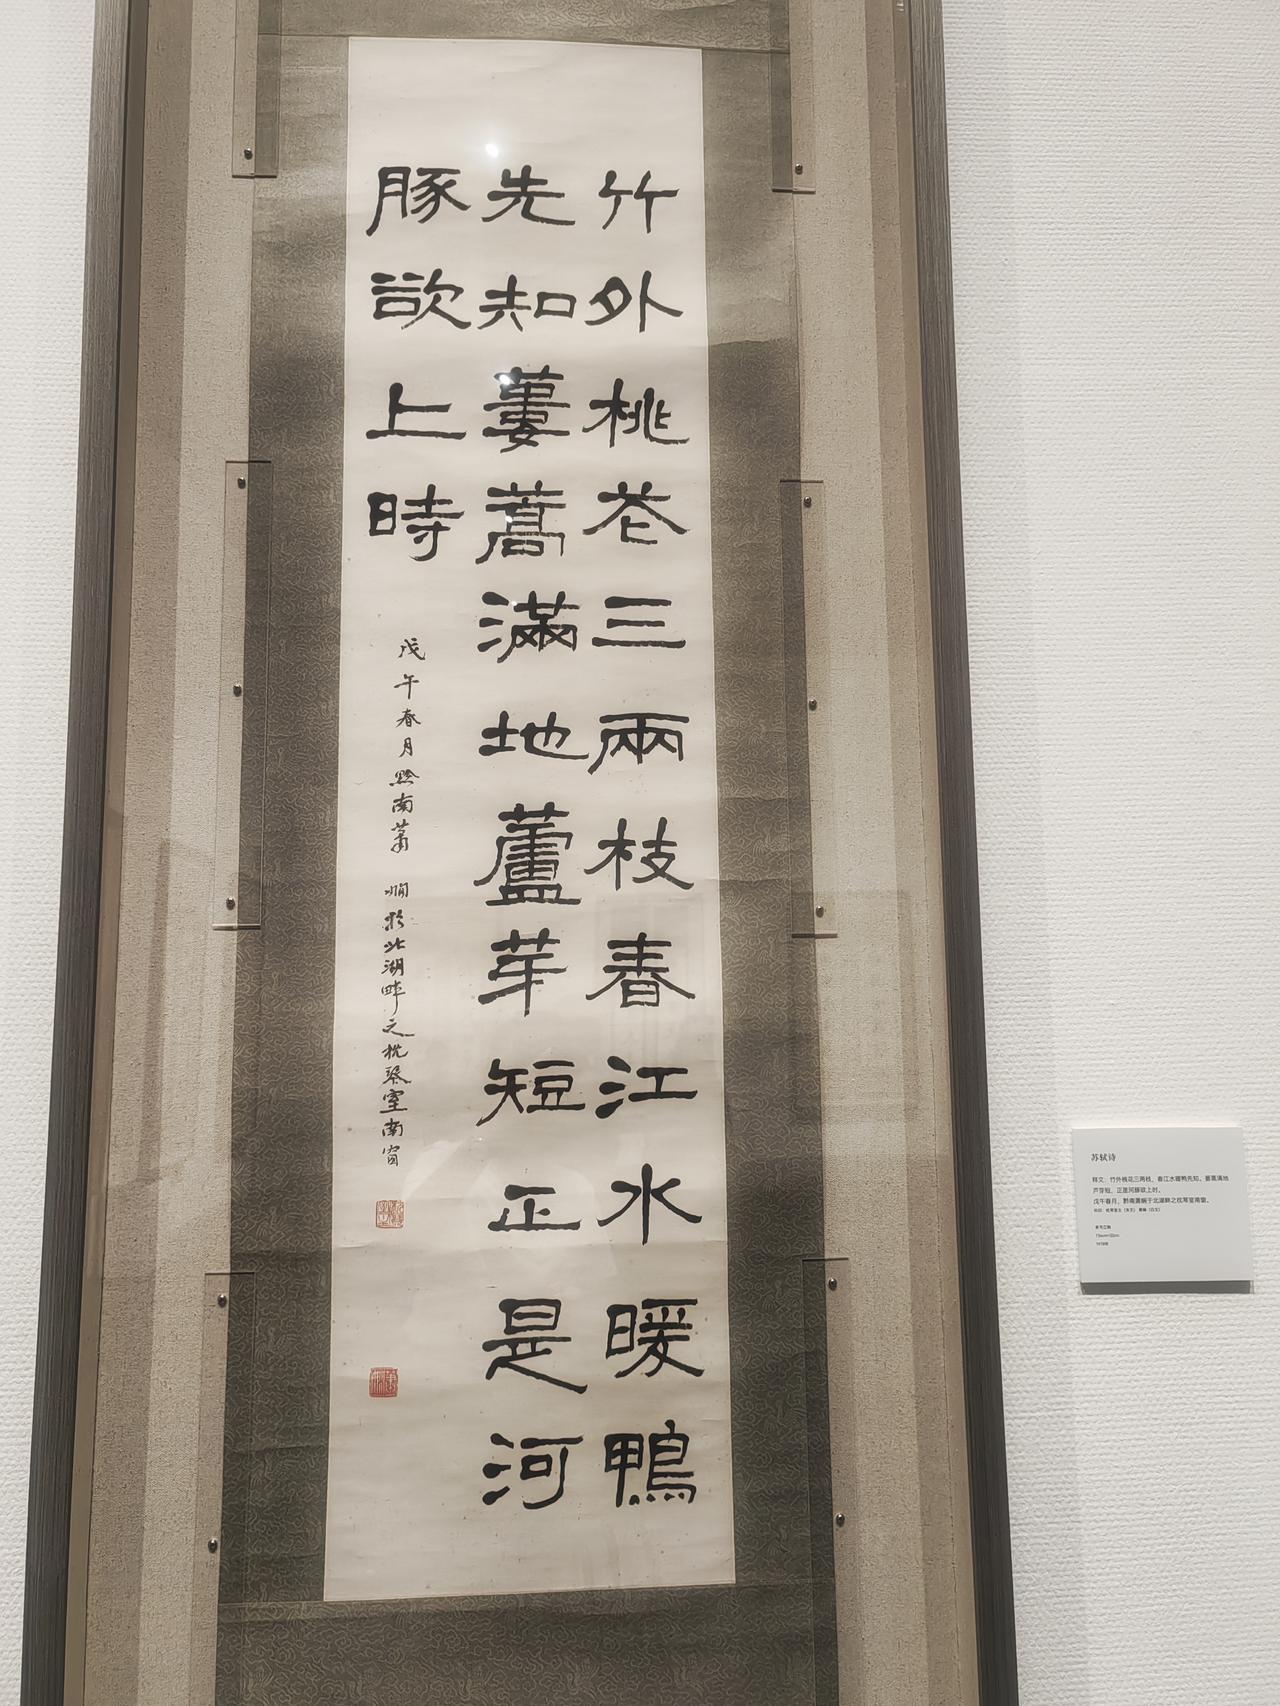 竹外桃花三兩枝春江水暖鴨
先知蔞蒿滿地蘆芽短正是河
豚欲上時
戊午春月黔南蕭嫻於北湖畔之枕琴室南窗
苏轼诗
释文：竹外桃花三两枝，春江水暖鸭先知。蒌蒿满地
芦芽短，正是河豚欲上时。
戊午春月，黔南萧娴于北湖畔之枕琴室南窗。